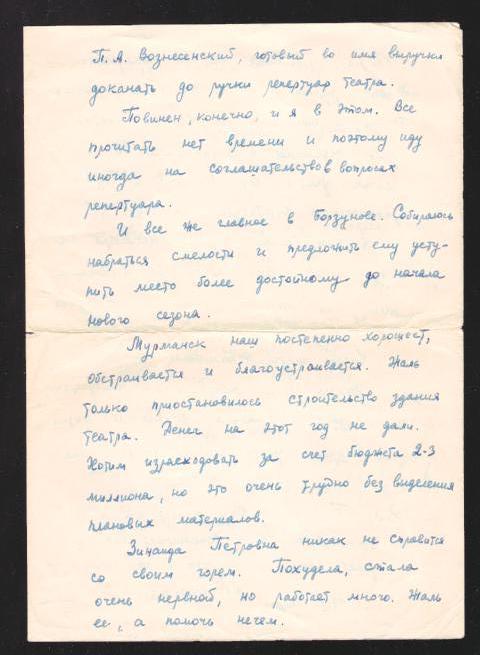 П. А. Вознесенский, готовый во имя выручки
доканать до ручки репертуар театра.
Повинен, конечно, и я в этом. Все
прочитать нет времени и поэтому иду
иногда на соглашательство в вопросах
репертуара.
И все же главное в Борзунове. Собираюсь
набраться смелости и предложить ему усту-
пить место более достойному до начала
нового сезона.
Мурманск наш постепенно хорошеет,
обстраивается и благоустраивается. Жаль
только приостановилось строительство здания
театра. Денег на этот год не дали.
Хотим израсходовать за счет бюджета 2-3
миллиона, но это очень трудно без выделения
плановых материалов.
Зинаида Петровна никак не справится
со своим горем. Похудела, стала
очень нервной, но работает много. Жаль
ее, а помочь нечем.